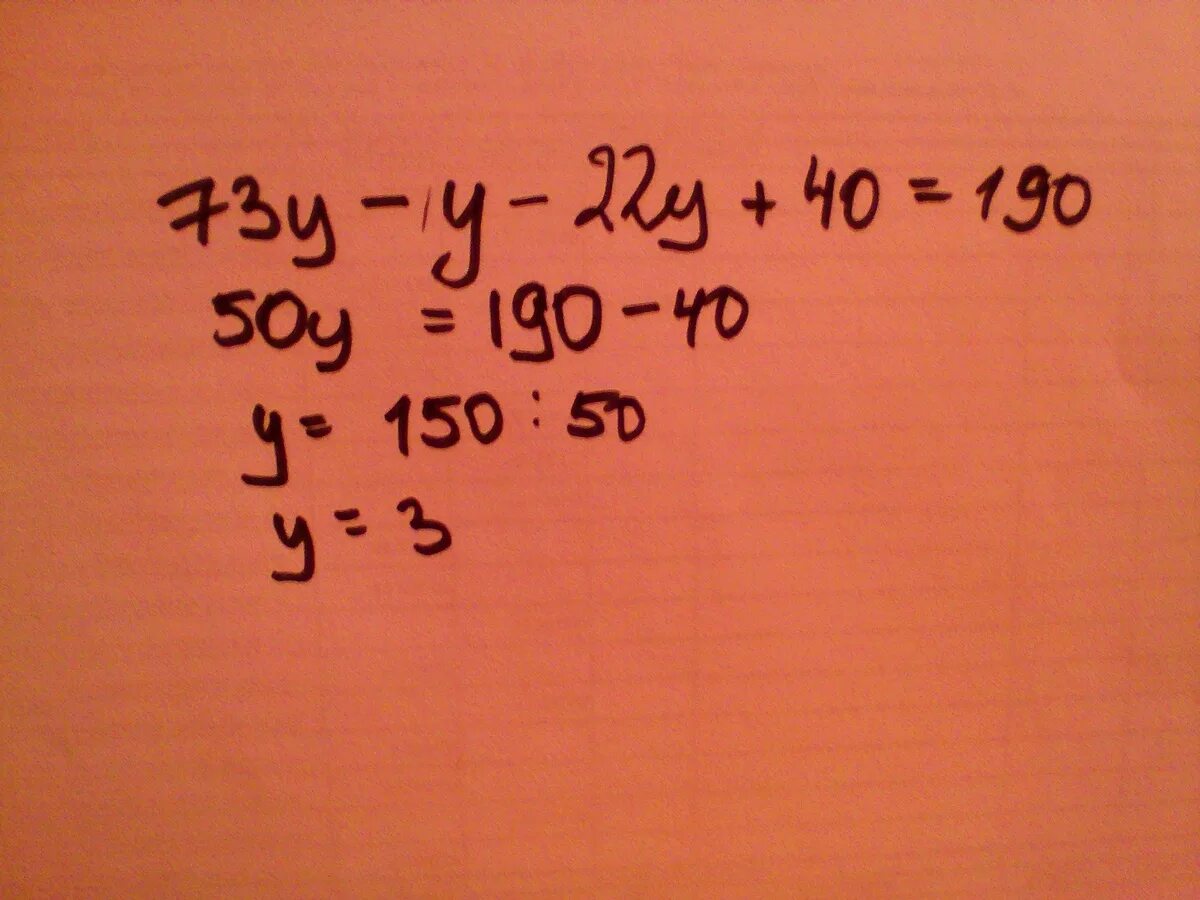 73y - y - 22y + 40 = 190
50y = 190 - 40
y = 150 : 50
y = 3